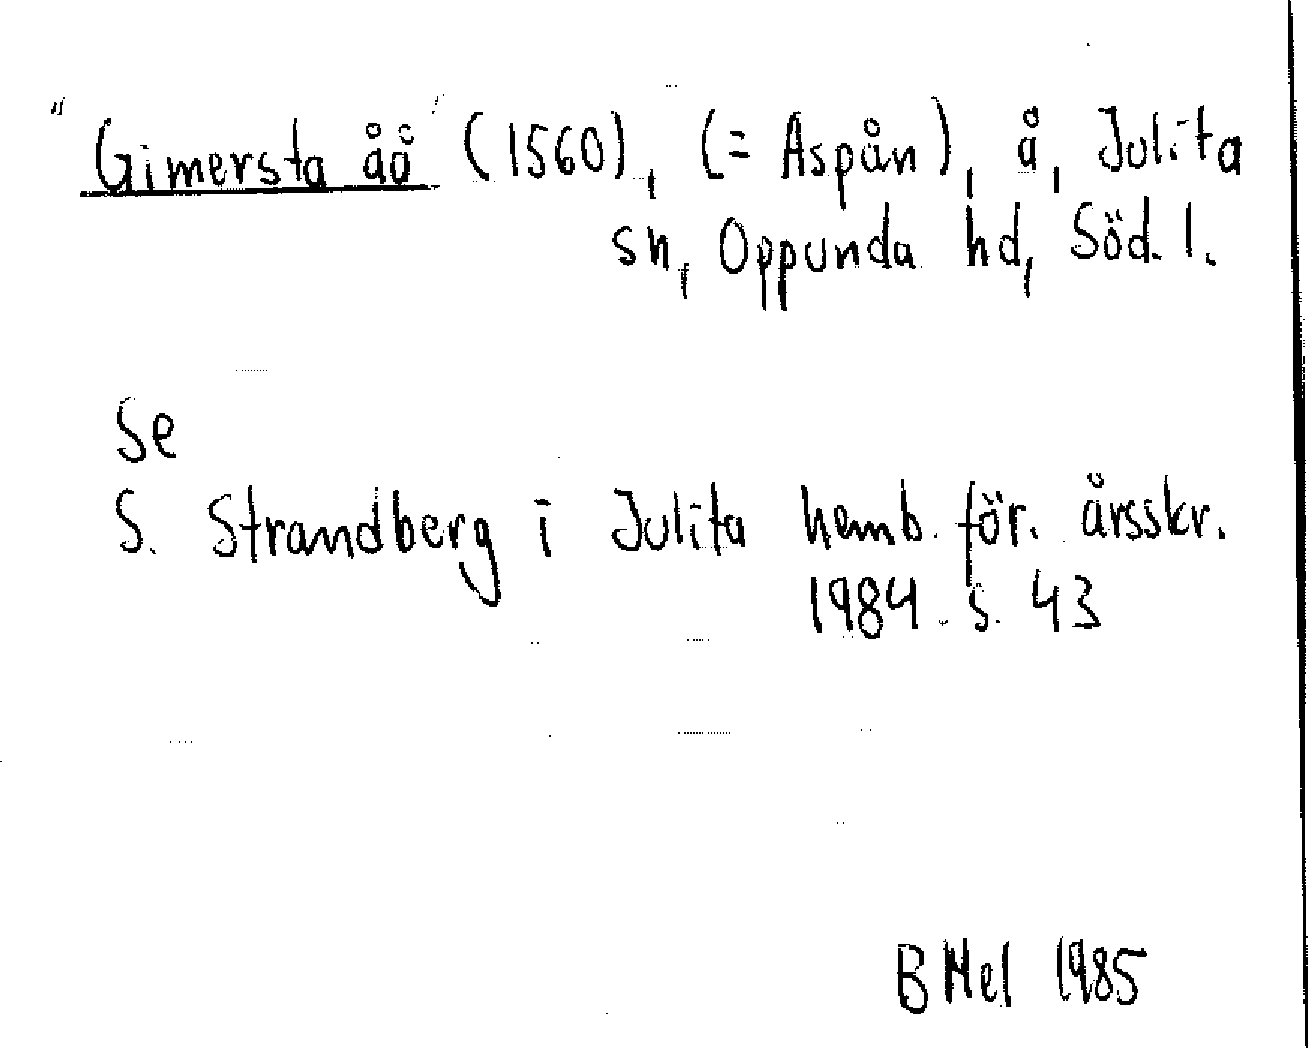 "Gimersta åå" (1560), (= Aspån), å, Julita
sn, Oppunda hd, Söd. l.
Se
S. Strandberg i Julita hemb. för. årsskr.
1984. s. 43
B Mel 1985